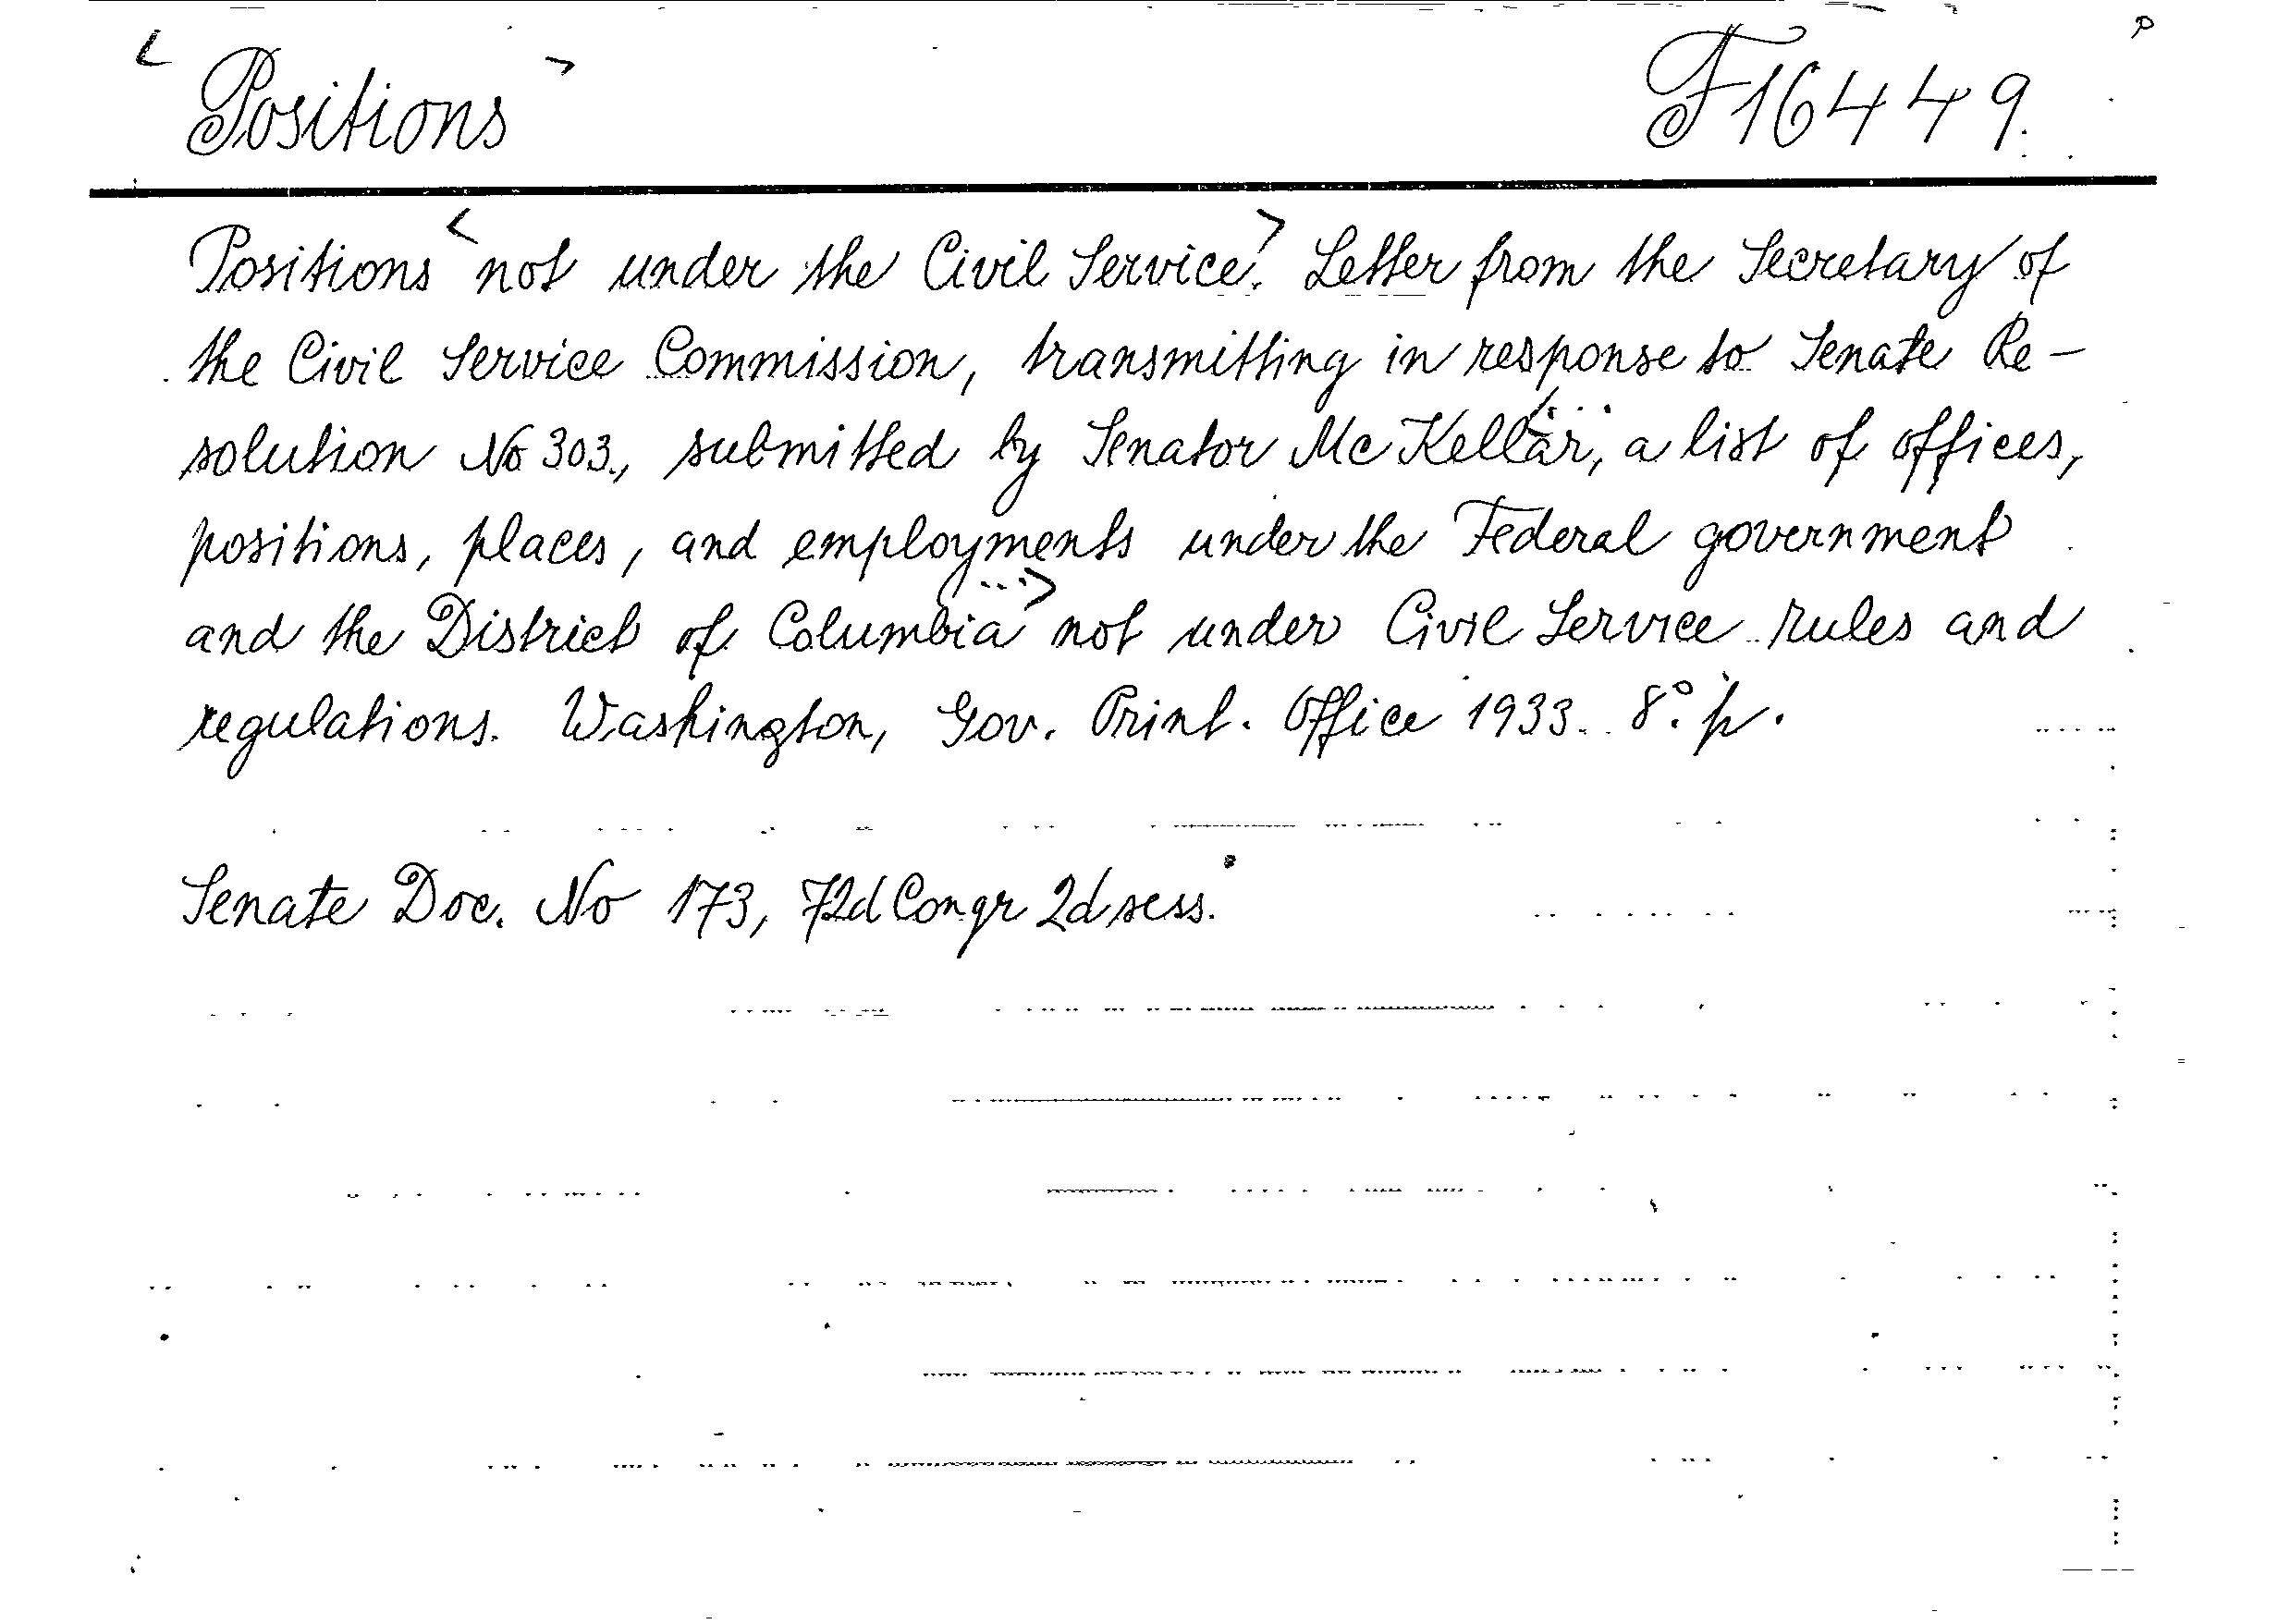 <Positions> F16449.
Positions <not under the Civil Service.> Letter from the Secretary of
the Civil Service Commission, transmitting in response to Senate Re-
solution No 303., submitted by Senator Mc Kellar, a list of offices,
positions, places, and employments under the Federal government
and the District of Columbia> not under Civil Service rules and
regulations. Washington, Gov. Print. Office 1933. 8°. p.
Senate Doc. No 173, 72d Congr 2d sess.